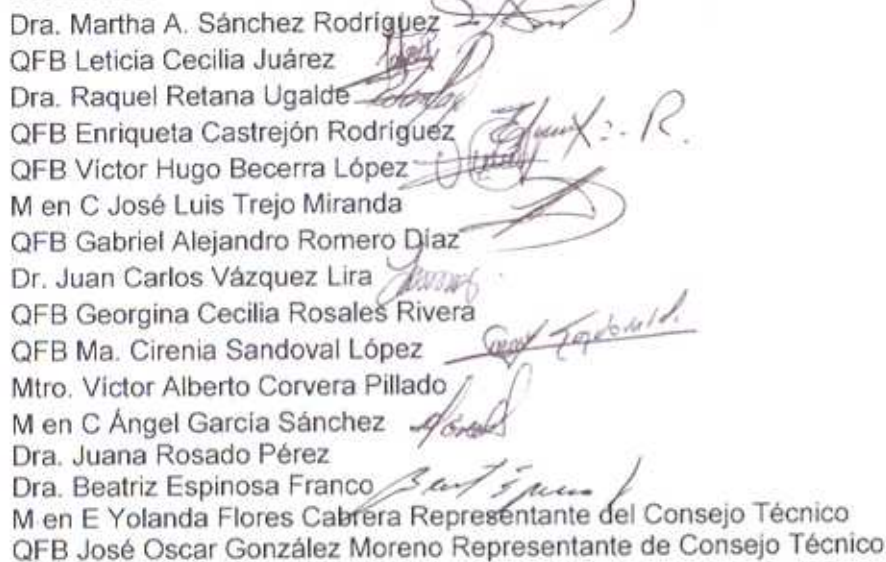 Dra. Martha A. Sánchez Rodríguez
QFB Leticia Cecilia Juárez
Dra. Raquel Retana Ugalde
QFB Enriqueta Castrejón Rodríguez
QFB Víctor Hugo Becerra López
M en C José Luis Trejo Miranda
QFB Gabriel Alejandro Romero Díaz
Dr. Juan Carlos Vázquez Lira
QFB Georgina Cecilia Rosales Rivera
QFB Ma. Cirenia Sandoval López
Mtro. Víctor Alberto Corvera Pillado
M en C Ángel García Sánchez
Dra. Juana Rosado Pérez
Dra. Beatriz Espinosa Franco
M en E Yolanda Flores Cabrera Representante del Consejo Técnico
QFB José Oscar González Moreno Representante de Consejo Técnico